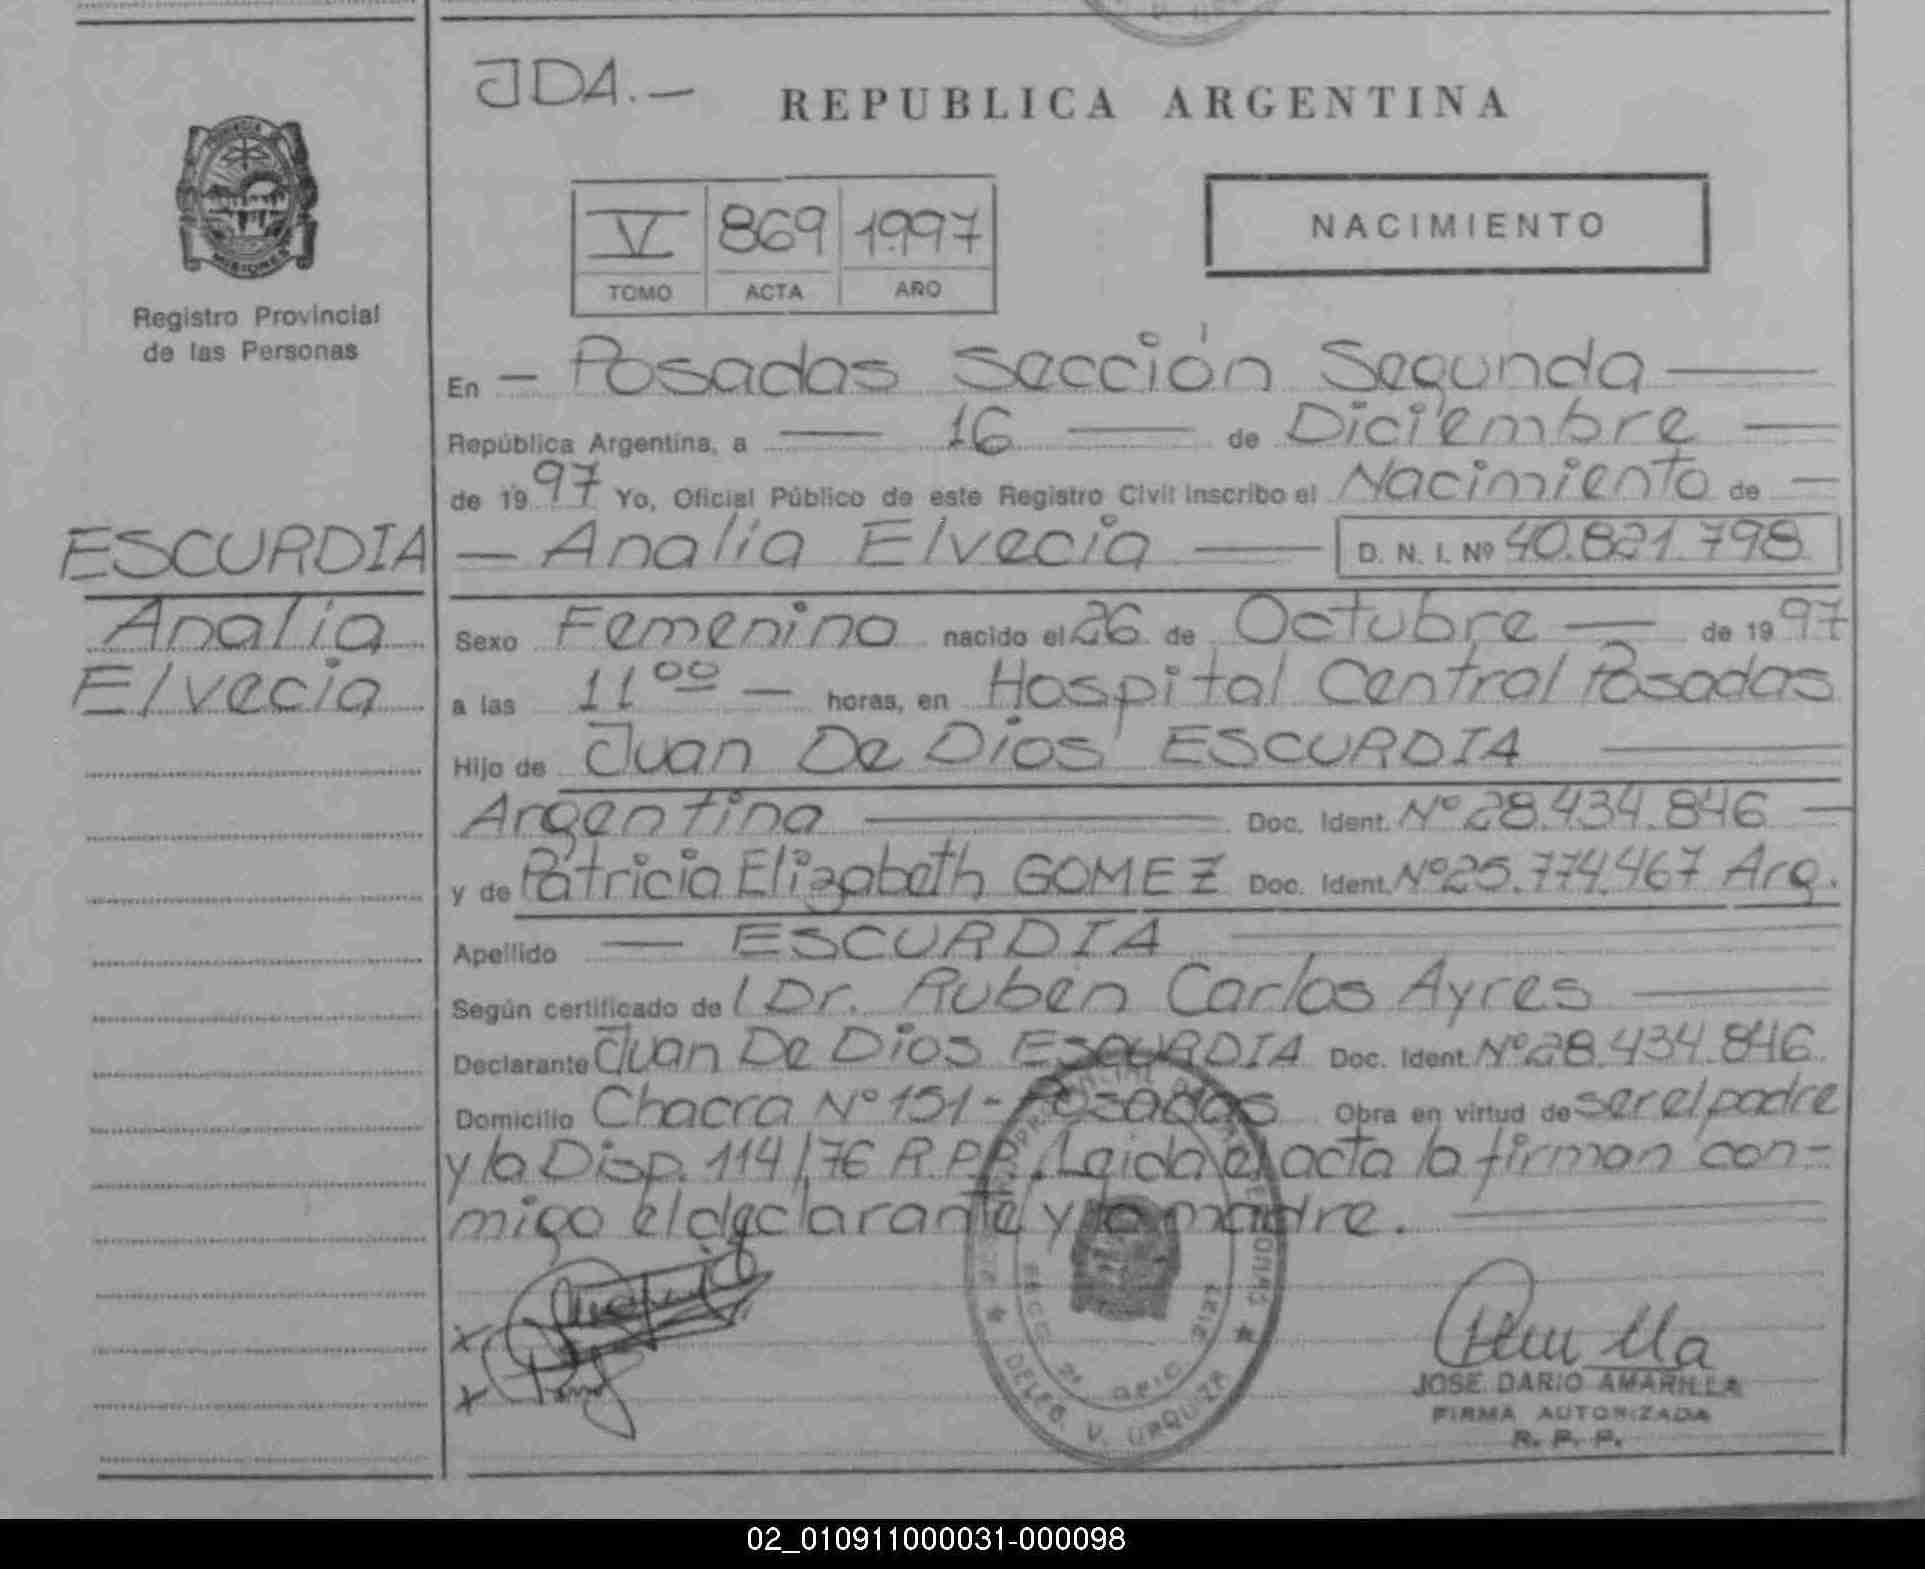 JDA.-
REPUBLICA ARGENTINA
V 869 1997
TOMO ACTA AÑO
NACIMIENTO
MISIONES
Registro Provincial
de las Personas
ESCURDIA
Analia
Elvecia
En - Posadas Sección Segunda
República Argentina, a 16 de Diciembre
de 1997 Yo, Oficial Público de este Registro Civil inscribo el Nacimiento de
Analia Elvecia D. N. I. Nº 40.821.798
Sexo Femenino nacido el 26 de Octubre de 1997
a las 11 00 horas, en Hospital Central Posadas
Hijo de Juan De Dios ESCURDIA
Argentina Doc. Ident. Nº 28.434.846
y de Patricia Elizabeth GOMEZ Doc. Ident. Nº 25.774.467 Arg.
Apellido ESCURDIA
Según certificado de Dr. Ruben Carlos Ayres
Declarante Juan De Dios ESCURDIA Doc. Ident. Nº 28.434.846
Domicilio Chacra Nº 151 - Posadas Obra en virtud de ser el padre
y la Disp. 114/76 R.P.P. Leida el acta la firman con-
migo el declarante y la madre.
DELEG. V. URQUIZA
JOSE DARIO AMARILLA
FIRMA AUTORIZADA
R. P. P.
02_010911000031-000098